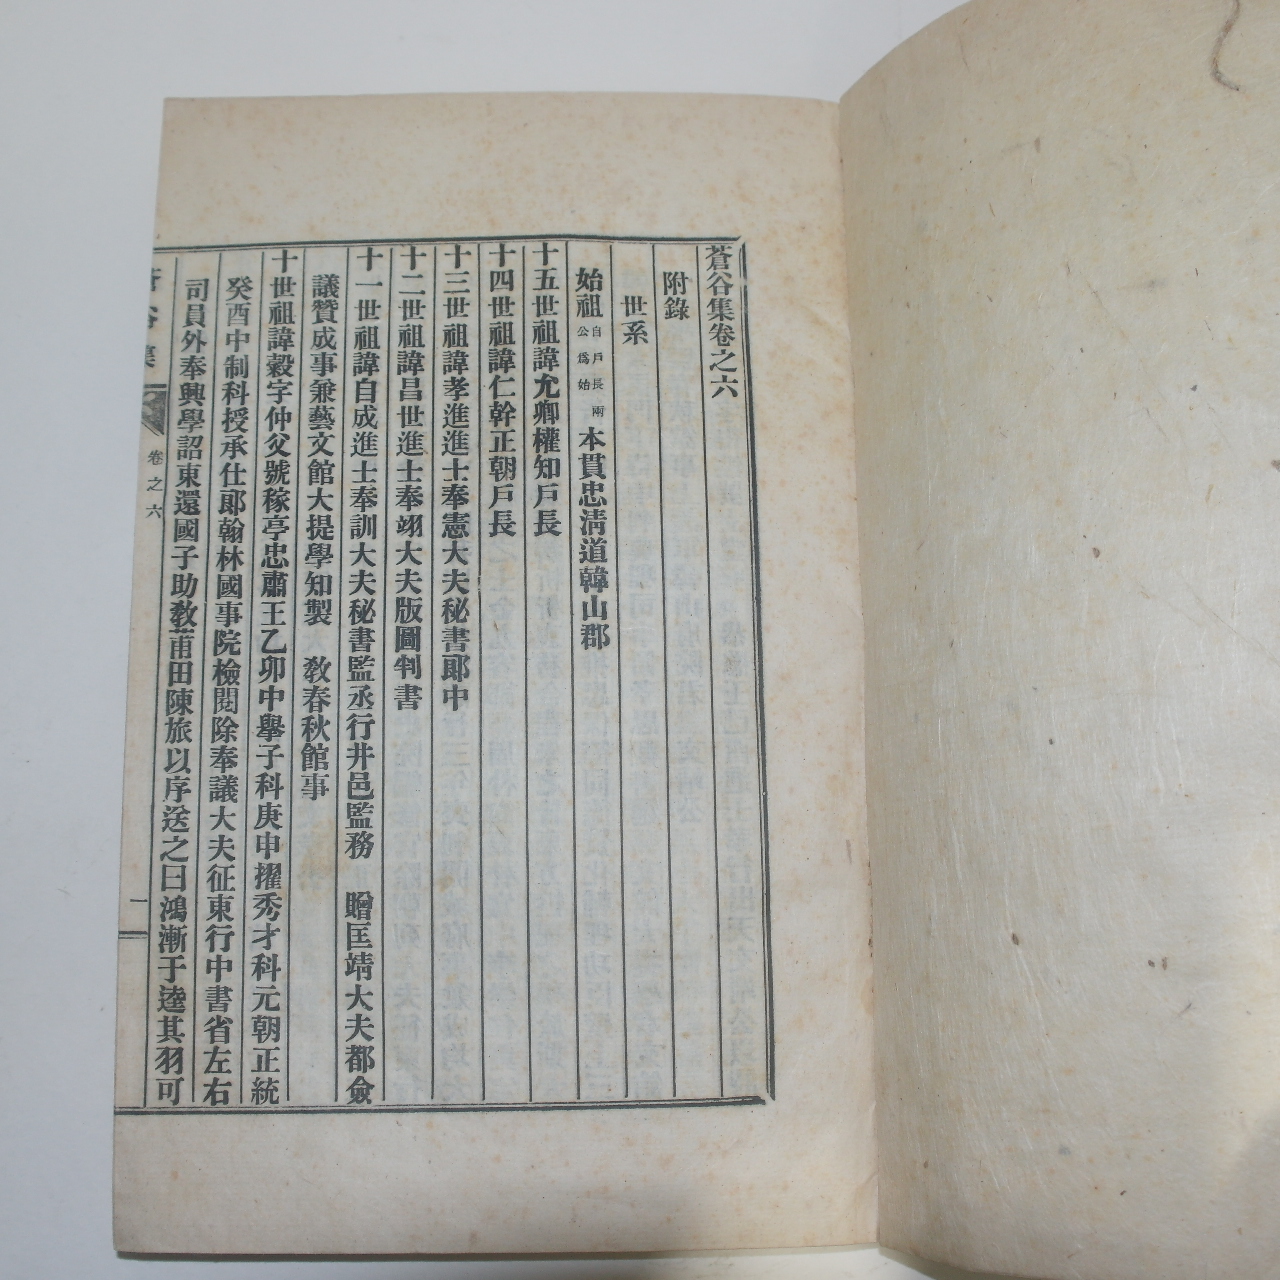 蒼谷集卷之六
附錄
世系
始祖 自戶長兩公爲始 本貫忠淸道韓山郡
十五世祖諱允卿權知戶長
十四世祖諱仁幹正朝戶長
十三世祖諱孝進進士奉憲大夫秘書郞中
十二世祖諱昌世進士奉翊大夫版圖判書
十一世祖諱自成進士奉訓大夫秘書監丞行井邑監務 贈匡靖大夫都僉
議贊成事兼藝文館大提學知製 敎春秋館事
十世祖諱穀字仲父號稼亭忠肅王乙卯中擧子科庚申擢秀才科元朝正統
癸酉中制科授承仕郞翰林國事院檢閱除奉議大夫征東行中書省左右
司員外奉興學詔東還國子助敎莆田陳旅以序送之曰鴻漸于逵其羽可
蒼谷集
卷之六
一